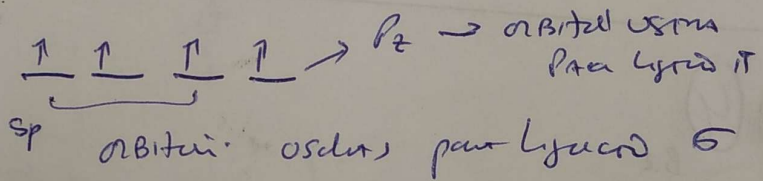 ↑ ↑ ↑ ↑ → Pz → ORBITAL USADA
PARA Ligação π
Sp ORBITAI. USADAS para Ligação σ